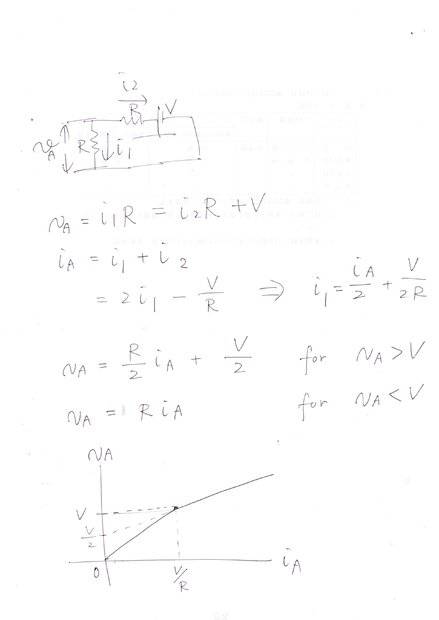 i2
R V
vA R i1
vA = i1R = i2R + V
iA = i1 + i2
= 2i1 - V/R ⇒ i1 = iA/2 + V/2R
vA = R/2 iA + V/2 for vA > V
vA = R iA for vA < V
vA
V
V/2
0 V/R iA